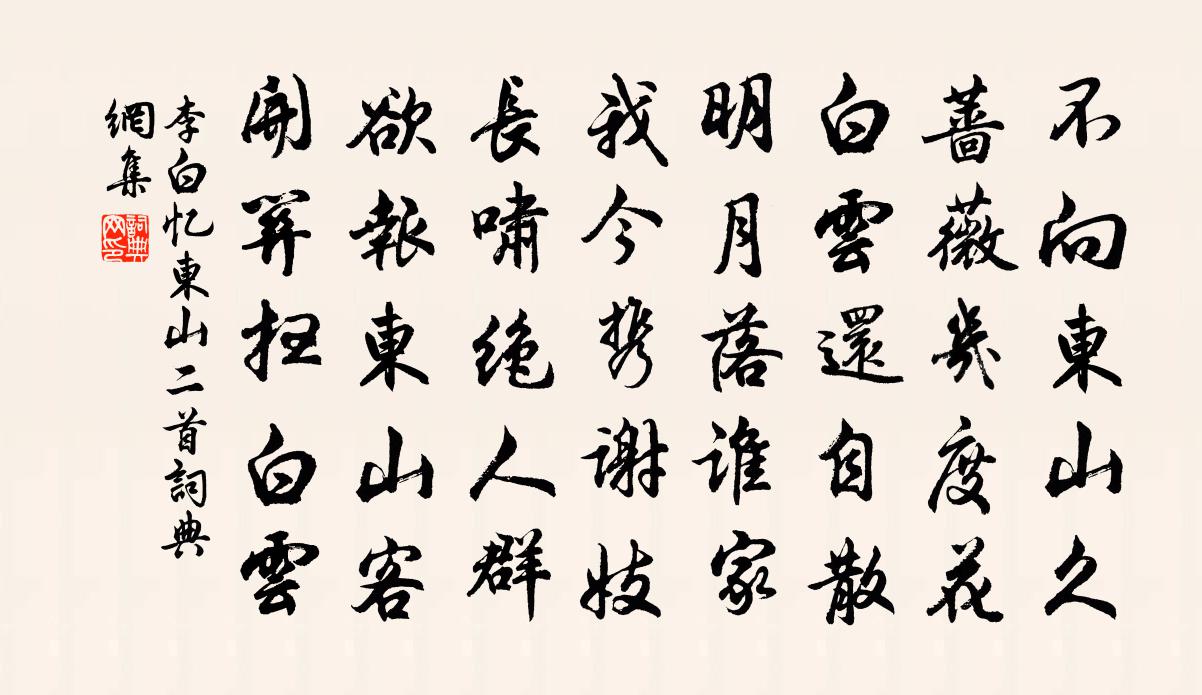 不向東山久
薔薇幾度花
白雲還自散
明月落誰家
我今携謝妓
長嘯絶人群
欲報東山客
開關掃白雲
李白忆東山二首詞典
網集
詞典
网印